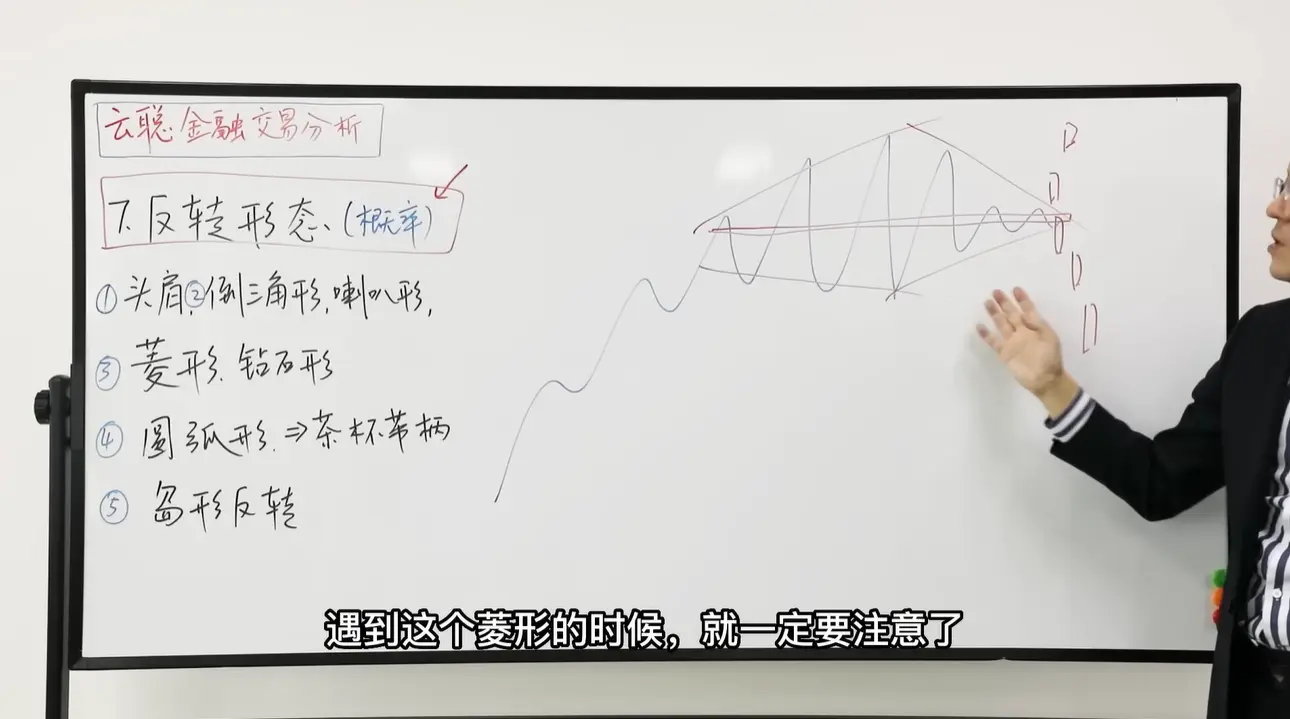 云聪金融交易分析
7.反转形态、(概率)
①头肩,②倒三角形,喇叭形,
③菱形.钻石形
④圆弧形.⇒茶杯带柄
⑤岛形反转
遇到这个菱形的时候，就一定要注意了